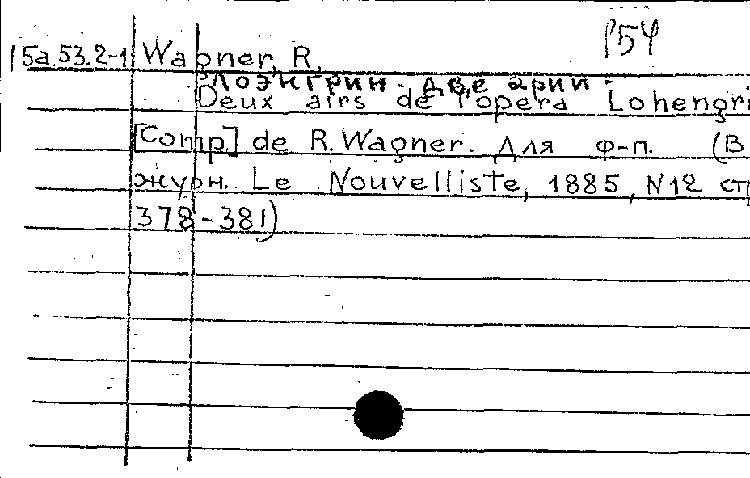 154
15a.53.2-1 Wagner, R.
Лоэнгрин. Две арии.
Deux airs de l'opera Lohengri
[Comp] de R. Wagner. Для ф-п. (В
журн. Le Nouvelliste, 1885, N12 ст
378-381)